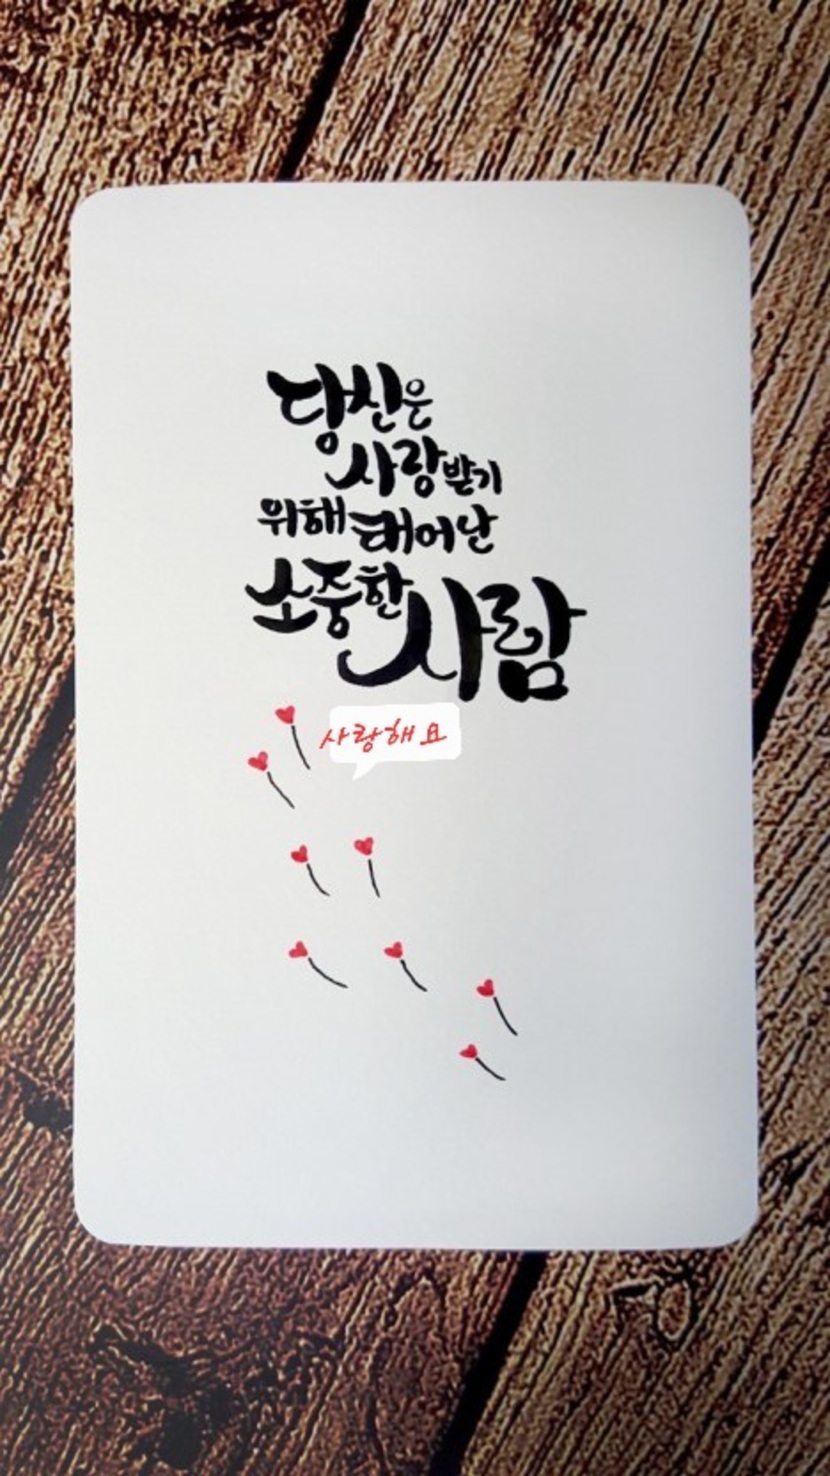 당신은
사랑받기
위해 태어난
소중한 사람
사랑해요